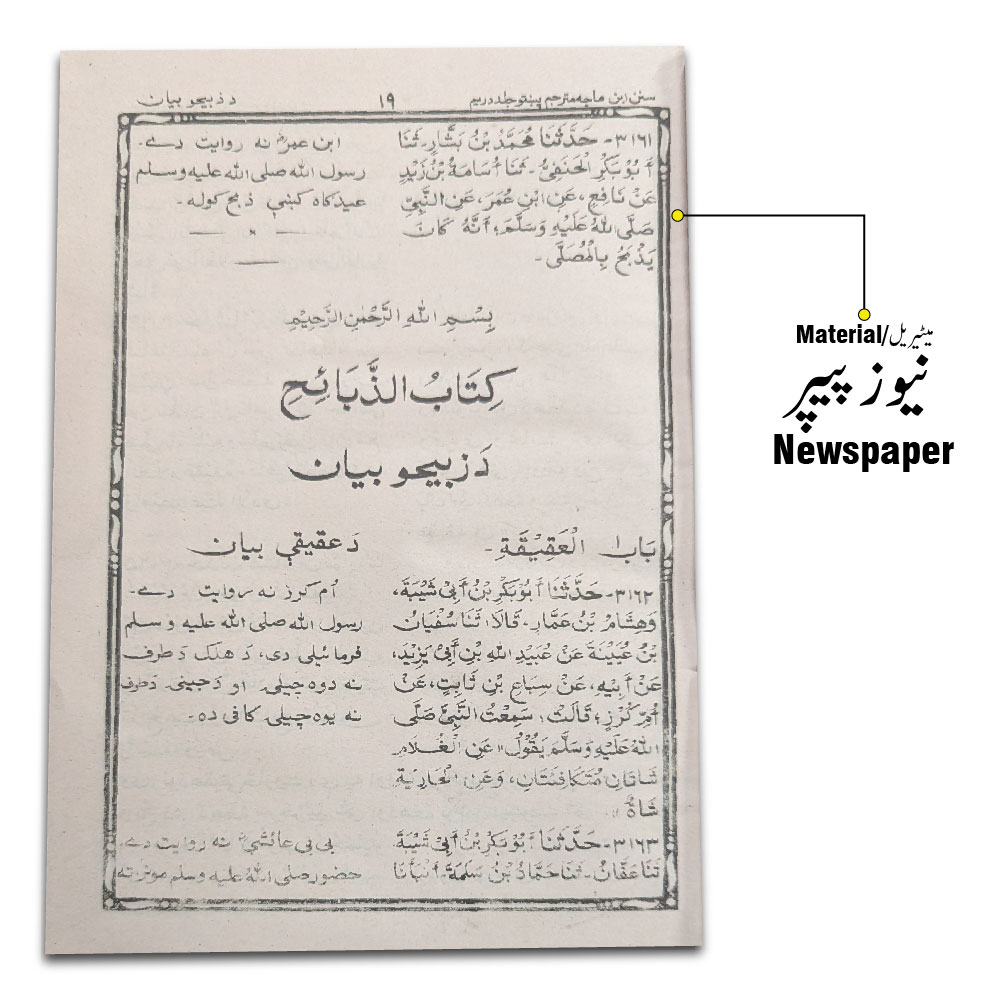 سنن ابن ماجه مترجم پښتو جلد دريم
١٩
د ذبيحو بيان
٣١٦١- حَدَّثَنَا مُحَمَّدُ بْنُ بَشَّارٍ- ثَنَا
أَبُوبَكْرٍ الْحَنَفِيُّ- ثَنَا أُسَامَةُ بْنُ زَيْدٍ
عَنْ نَافِعٍ، عَنِ ابْنِ عُمَرَ، عَنِ النَّبِيِّ
صَلَّى اللهُ عَلَيْهِ وَسَلَّمَ؛ أَنَّهُ كَانَ
يَذْبَحُ بِالْمُصَلَّى-
ابن عمرؓ نه روايت دے-
رسول الله صلى الله عليه وسلم
عيدګاه كښې ذبح كوله-
بِسْمِ اللهِ الرَّحْمٰنِ الرَّحِيْمِ
كِتَابُ الذَّبَائِحِ
دَ زبيحو بيان
بَابُ الْعَقِيْقَةِ-
دَ عقيقې بيان
٣١٦٢- حَدَّثَنَا أَبُوْبَكْرِ بْنُ أَبِيْ شَيْبَةَ،
وَهِشَامُ بْنُ عَمَّارٍ- قَالَا: ثَنَا سُفْيَانُ
بْنُ عُيَيْنَةَ عَنْ عُبَيْدِ اللهِ بْنِ أَبِيْ يَزِيْدَ،
عَنْ أَبِيْهِ، عَنْ سِبَاعِ بْنِ ثَابِتٍ، عَنْ
أُمِّ كُرْزٍ؛ قَالَتْ: سَمِعْتُ النَّبِيَّ صَلَّى
اللهُ عَلَيْهِ وَسَلَّمَ يَقُوْلُ "عَنِ الْغُلَامِ
شَاتَانِ مُتَكَافِئَتَانِ، وَعَنِ الْجَارِيَةِ
شَاةٌ"
اُم كرز نه روايت دے-
رسول الله صلى الله عليه وسلم
فرمائيلى دى، دَ هلك دَ طرف
نه دوه چيلى او دَ جينئ دَ طرف
نه يوه چيلى كافى ده-
٣١٦٣- حَدَّثَنَا أَبُوْبَكْرِ بْنُ أَبِيْ شَيْبَةَ
ثَنَا عَفَّانُ- ثَنَا حَمَّادُ بْنُ سَلَمَةَ- أَنْبَأَنَا
بى بى عائشےؓ نه روايت دے-
حضور صلى الله عليه وسلم مونږ ته
Material/میٹیریل
نیوز پیپر
Newspaper